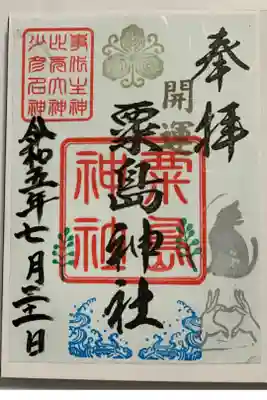 奉拝
開運
粟島神社
粟島
神社
事代主神
比売大神
少彦名神
令和五年七月 日